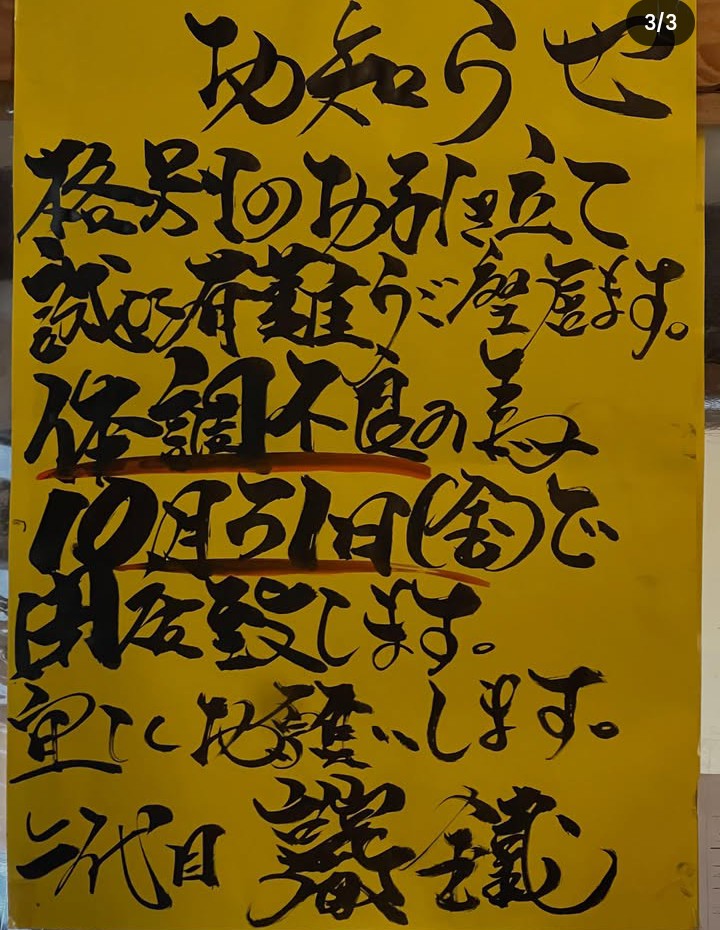 3/3
お知らせ
格別のお引立て
誠に有難うご座居ます。
体調不良の為
10月31日(金)で
閉店致します。
宜しくお願いします。
二代目